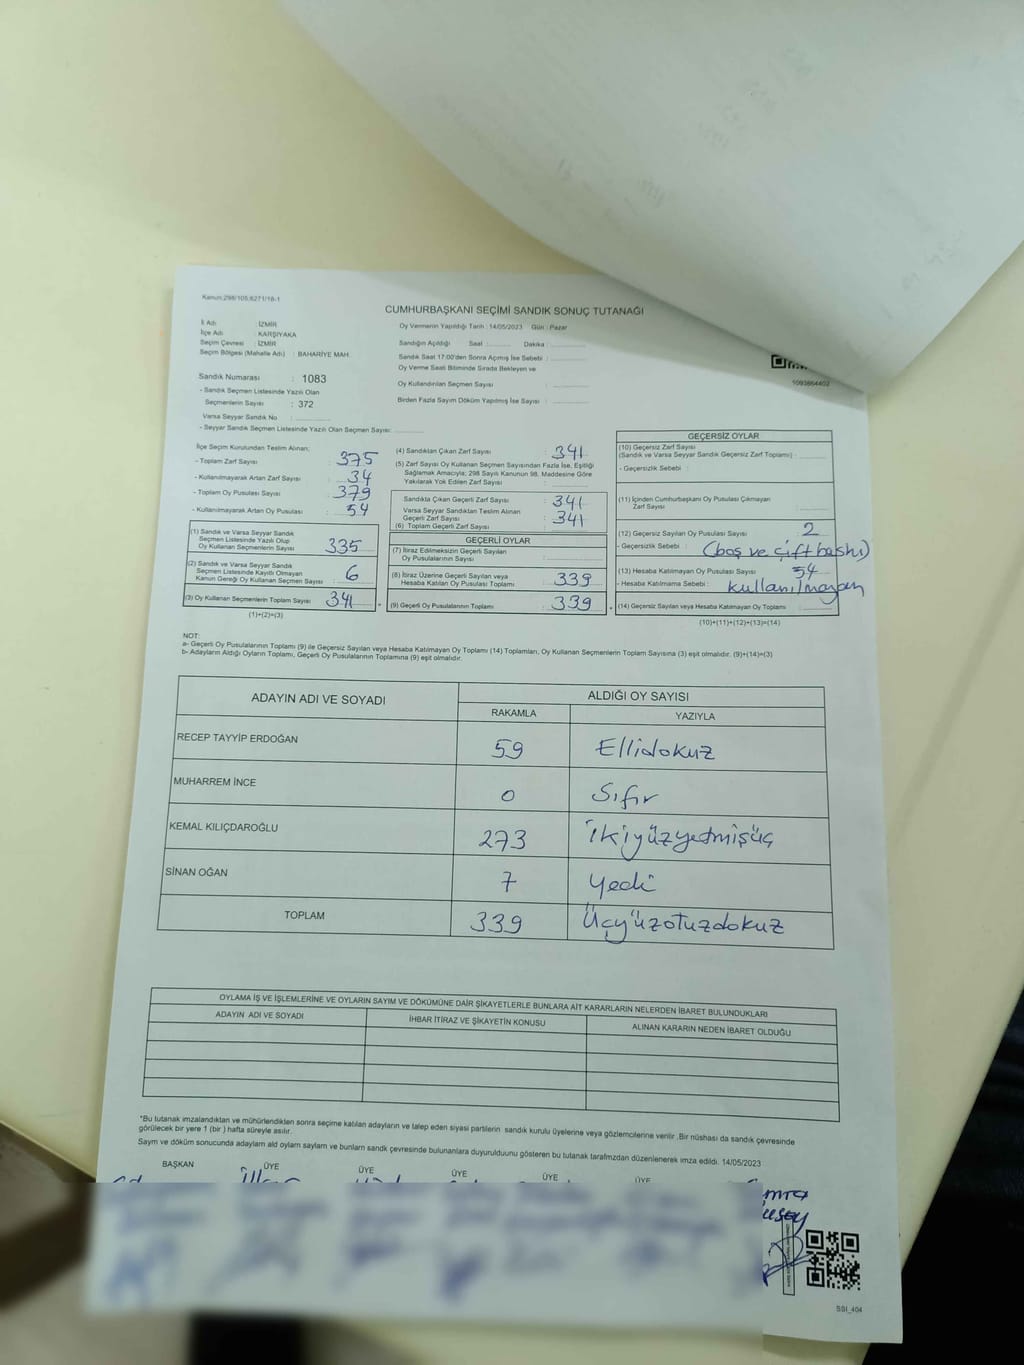 Kanun;298/105;6271/18-1
CUMHURBAŞKANI SEÇİMİ SANDIK SONUÇ TUTANAĞI
İl Adı : İZMİR
İlçe Adı : KARŞIYAKA
Seçim Çevresi : İZMİR
Seçim Bölgesi (Mahalle Adı) : BAHARİYE MAH.
Sandık Numarası : 1083
- Sandık Seçmen Listesinde Yazılı Olan
Seçmenlerin Sayısı : 372
Varsa Seyyar Sandık No :
- Seyyar Sandık Seçmen Listesinde Yazılı Olan Seçmen Sayısı:
Oy Vermenin Yapıldığı Tarih : 14/05/2023 Gün : Pazar
Sandığın Açıldığı Saat : Dakika :
Sandık Saat 17:00'den Sonra Açmış İse Sebebi :
Oy Verme Saati Bitiminde Sırada Bekleyen ve
Oy Kullandırılan Seçmen Sayısı :
Birden Fazla Sayım Döküm Yapılmış İse Sayısı :
1093864402
İlçe Seçim Kurulundan Teslim Alınan;
- Toplam Zarf Sayısı : 375
- Kullanılmayarak Artan Zarf Sayısı : 34
- Toplam Oy Pusulası Sayısı : 379
- Kullanılmayarak Artan Oy Pusulası : 54
(1) Sandık ve Varsa Seyyar Sandık
Seçmen Listesinde Yazılı Olup
Oy Kullanan Seçmenlerin Sayısı : 335
(2) Sandık ve Varsa Seyyar Sandık
Seçmen Listesinde Kayıtlı Olmayan
Kanun Gereği Oy Kullanan Seçmen Sayısı : 6
(3) Oy Kullanan Seçmenlerin Toplam Sayısı : 341
(1)+(2)=(3)
(4) Sandıktan Çıkan Zarf Sayısı : 341
(5) Zarf Sayısı Oy Kullanan Seçmen Sayısından Fazla İse, Eşitliği
Sağlamak Amacıyla; 298 Sayılı Kanunun 98. Maddesine Göre
Yakılarak Yok Edilen Zarf Sayısı :
Sandıkta Çıkan Geçerli Zarf Sayısı : 341
Varsa Seyyar Sandıktan Teslim Alınan
Geçerli Zarf Sayısı : 341
(6) Toplam Geçerli Zarf Sayısı :
GEÇERLİ OYLAR
(7) İtiraz Edilmeksizin Geçerli Sayılan
Oy Pusulalarının Sayısı :
(8) İtiraz Üzerine Geçerli Sayılan veya
Hesaba Katılan Oy Pusulası Toplamı : 339
(9) Geçerli Oy Pusulalarının Toplamı : 339
GEÇERSİZ OYLAR
(10) Geçersiz Zarf Sayısı
(Sandık ve Varsa Seyyar Sandık Geçersiz Zarf Toplamı) :
- Geçersizlik Sebebi :
(11) İçinden Cumhurbaşkanı Oy Pusulası Çıkmayan
Zarf Sayısı :
(12) Geçersiz Sayılan Oy Pusulası Sayısı : 2
- Geçersizlik Sebebi : (boş ve çift baskı)
(13) Hesaba Katılmayan Oy Pusulası Sayısı : 54
- Hesaba Katılmama Sebebi : kullanılmayan
(14) Geçersiz Sayılan veya Hesaba Katılmayan Oy Toplamı :
(10)+(11)+(12)+(13)=(14)
NOT:
a- Geçerli Oy Pusulalarının Toplamı (9) ile Geçersiz Sayılan veya Hesaba Katılmayan Oy Toplamı (14) Toplamları, Oy Kullanan Seçmenlerin Toplam Sayısına (3) eşit olmalıdır. (9)+(14)=(3)
b- Adayların Aldığı Oyların Toplamı, Geçerli Oy Pusulalarının Toplamına (9) eşit olmalıdır.
ADAYIN ADI VE SOYADI ALDIĞI OY SAYISI
RAKAMLA YAZIYLA
RECEP TAYYİP ERDOĞAN 59 Ellidokuz
MUHARREM İNCE 0 Sıfır
KEMAL KILIÇDAROĞLU 273 İkiyüzyetmişüç
SİNAN OĞAN 7 Yedi
TOPLAM 339 Üçyüzotuzdokuz
OYLAMA İŞ VE İŞLEMLERİNE VE OYLARIN SAYIM VE DÖKÜMÜNE DAİR ŞİKAYETLERLE BUNLARA AİT KARARLARIN NELERDEN İBARET BULUNDUKLARI
ADAYIN ADI VE SOYADI İHBAR İTİRAZ VE ŞİKAYETİN KONUSU ALINAN KARARIN NEDEN İBARET OLDUĞU
*Bu tutanak imzalandıktan ve mühürlendikten sonra seçime katılan adayların ve talep eden siyasi partilerin sandık kurulu üyelerine veya gözlemcilerine verilir .Bir nüshası da sandık çevresinde
görülecek bir yere 1 (bir ) hafta süreyle asılır.
Sayım ve döküm sonucunda adaylarm ald oylarm saylarm ve bunlarm sandk çevresinde bulunanlara duyurulduunu gösteren bu tutanak tarafmzdan düzenlenerek imza edildi. 14/05/2023
BAŞKAN ÜYE ÜYE ÜYE ÜYE ÜYE
SSI_404